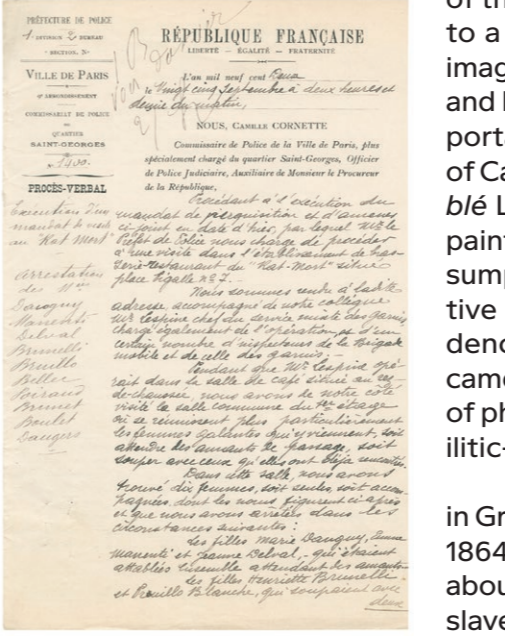 PRÉFECTURE DE POLICE
1ère DIVISION 2e BUREAU
SECTION. N°
VILLE DE PARIS
9e ARRONDISSEMENT
COMMISSARIAT DE POLICE
DU
QUARTIER
SAINT-GEORGES
N° 1400.
PROCÈS-VERBAL
Exécution d'un
mandat de visite
au "Rat Mort"
Arrestation
des Nées
Dauguy
Manenti
Delval
Brunelli
Beller
Poiraud
Brunet
Boulet
Daugers
RÉPUBLIQUE FRANÇAISE
LIBERTÉ — ÉGALITÉ — FRATERNITÉ
L'an mil neuf cent Deux
le Vingt cinq Septembre à deux heures et
demie du matin,
NOUS, CAMILLE CORNETTE
Commissaire de Police de la Ville de Paris, plus
spécialement chargé du quartier Saint-Georges, Officier
de Police Judiciaire, Auxiliaire de Monsieur le Procureur
de la République,
Procédant à l'exécution du
mandat de perquisition et d'amener
ci-joint en date d'hier, par lequel Mr le
Préfet de Police nous charge de procéder
à une visite dans l'établissement de bras-
serie-restaurant du "Rat-Mort" situé
place Pigalle n° 7.
Nous sommes rendu à ladite
adresse, accompagné de notre collègue
Mr Lespine chef du service mixte des garnis,
chargé également de l'opération, et d'un
certain nombre d'inspecteurs de la Brigade
mobile et de celle des garnis.
Pendant que Mr Lespine opé-
rait dans la salle de café située au rez-
de-chaussée, nous avons de notre côté
visité la salle commune du 1er étage
où se réunissent plus particulièrement
les femmes galantes qui y viennent, soit
attendre des amants de passage, soit
souper avec ceux qu'elles ont déjà rencontrés.
Dans cette salle, nous avons
trouvé dix femmes, soit seules, soit accom-
pagnées, dont les noms figurent ci-après
et que nous avons arrêtées dans les
circonstances suivantes :
Les filles Marie Dauguy, Emma
Manenti et Jeanne Delval, - qui étaient
attablées ensemble attendant des amants
Les filles Henriette Brunelli
et Blanche, qui soupaient avec
deux
to a
imag
and
porta
of Ca
blé L
paint
sump
tive
deno
came
of ph
ilitic-
in Gr
1864
abou
slave